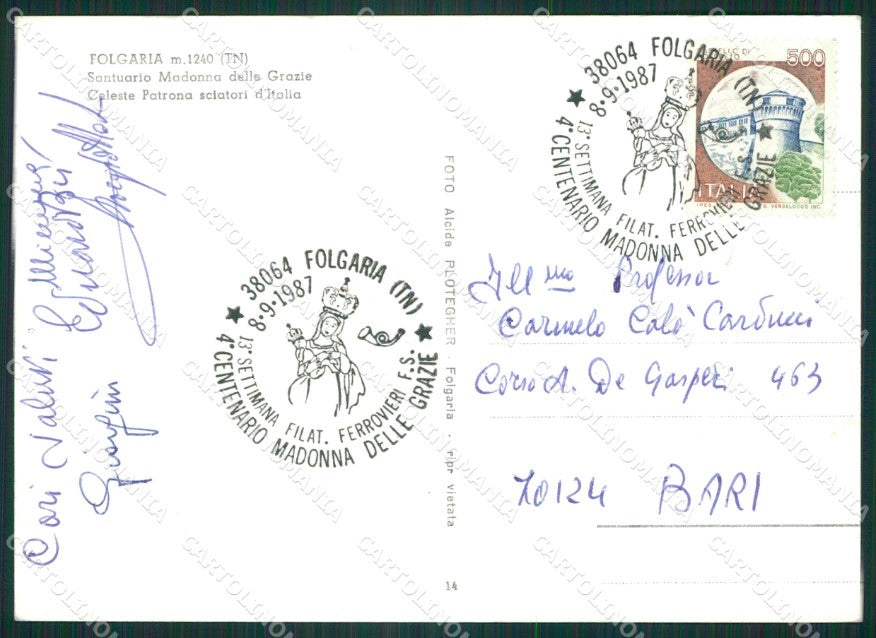 FOLGARIA m.1240 (TN)
Santuario Madonna delle Grazie
Celeste Patrona sciatori d'Italia
Cari Saluti
Giorgini
FOTO Alcide PLOTEGHER - Folgaria - ripr vietata
14
38064 FOLGARIA (TN)
8-9-1987
13ª SETTIMANA FILAT. FERROVIERI F.S.
★ 4°CENTENARIO MADONNA DELLE GRAZIE ★
38064 FOLGARIA (TN)
8-9-1987
13ª SETTIMANA FILAT. FERROVIERI F.S.
★ 4°CENTENARIO MADONNA DELLE GRAZIE ★
500
ITALIA
Ill mo Professor
Carmelo Colò Carducci
Corso A. De Gasperi 463
70124 BARI
CARTOLINOMANIA